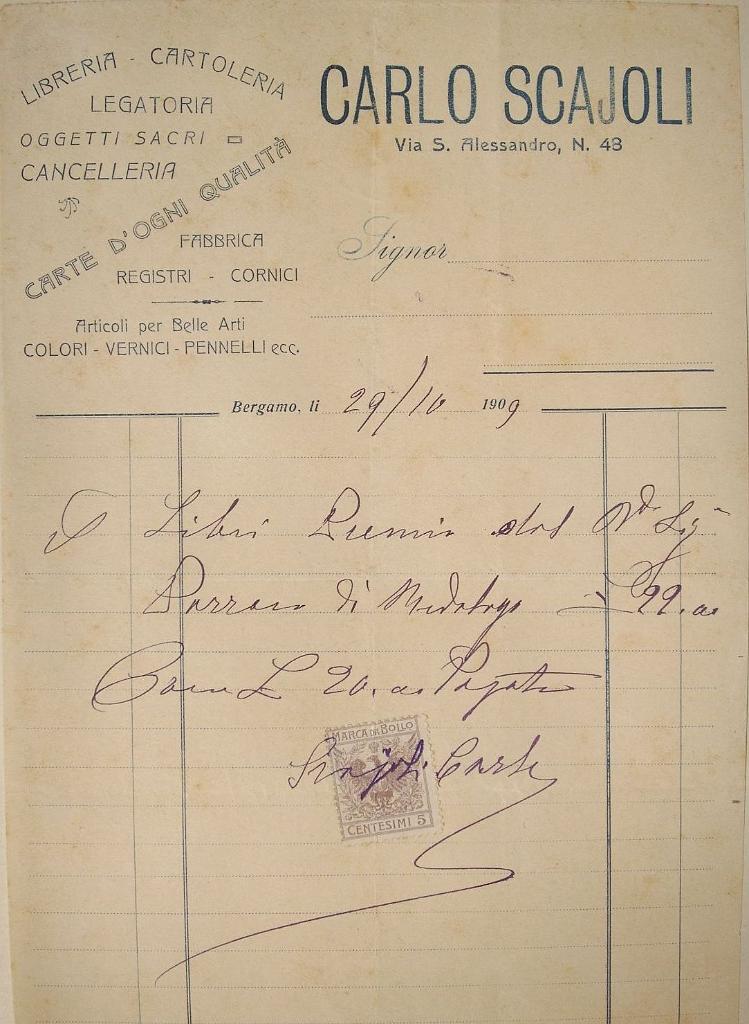 LIBRERIA - CARTOLERIA
LEGATORIA
OGGETTI SACRI
CANCELLERIA
CARTE D'OGNI QUALITÀ
FABBRICA
REGISTRI - CORNICI
Articoli per Belle Arti
COLORI - VERNICI - PENNELLI ecc.
CARLO SCAJOLI
Via S. Alessandro, N. 48
Signor
Bergamo, li 29/10 1909
Libri Premio dal
di Medolago L 22.
L 20. Pagato
MARCA DA BOLLO
Scajoli Carlo
CENTESIMI 5